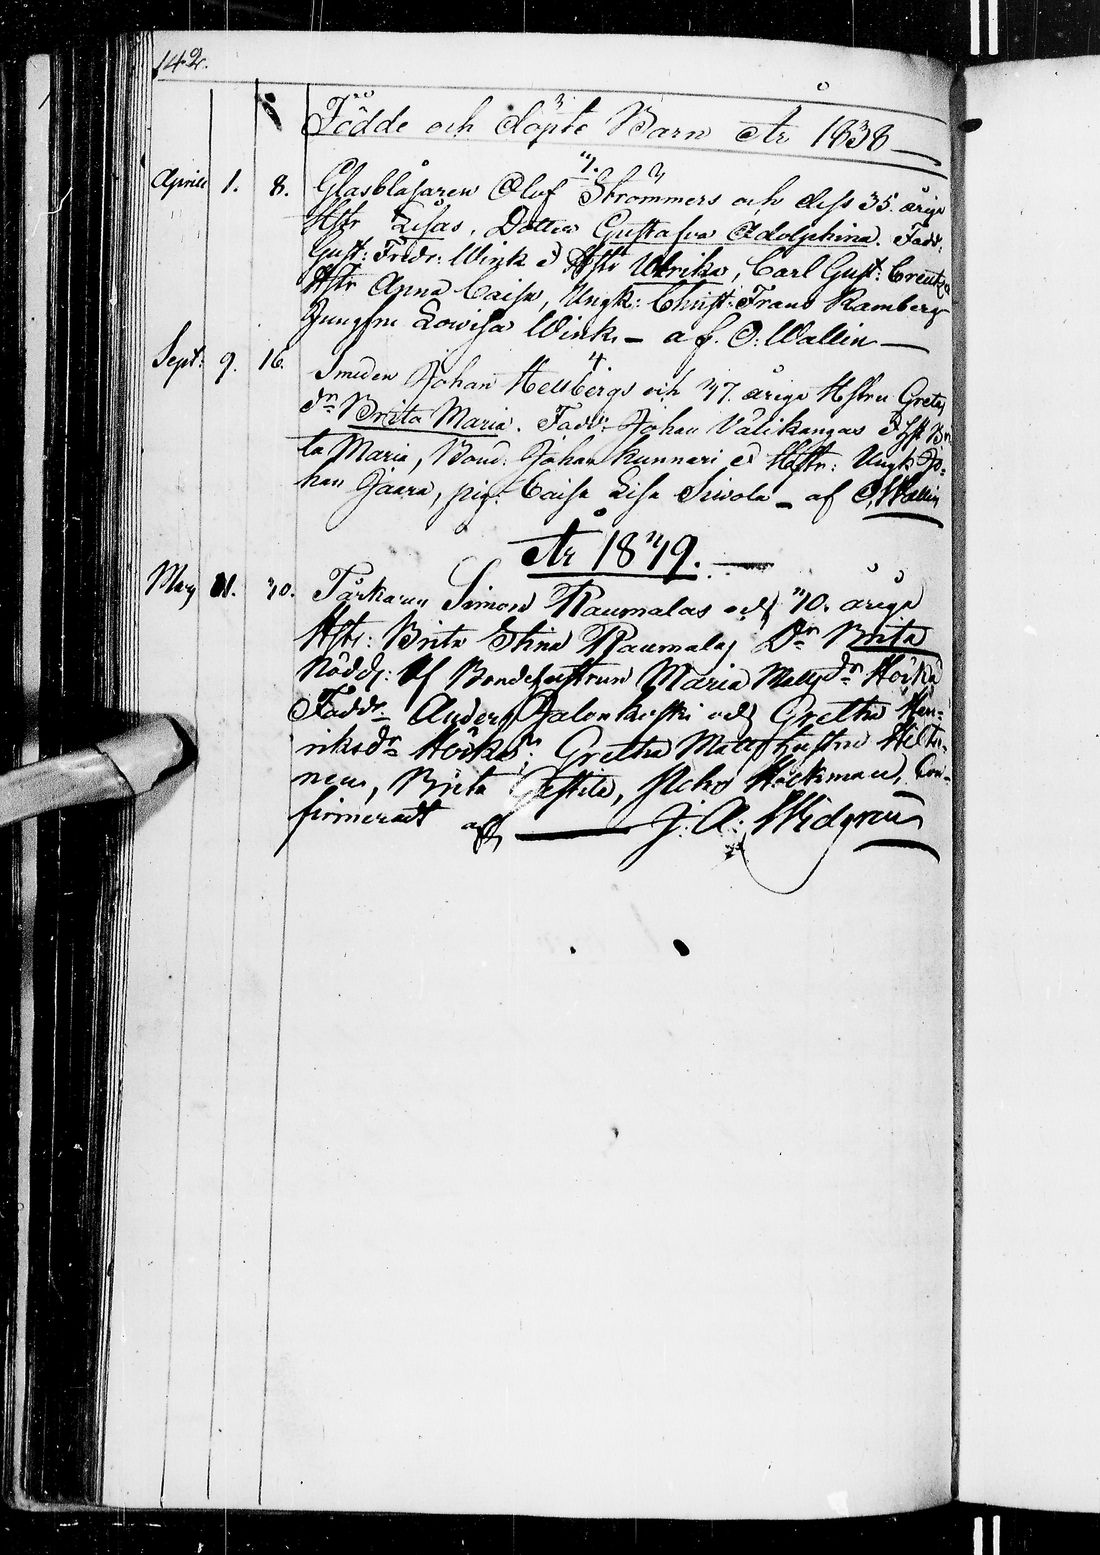 142.
Födde och döpte Barn År 1838
Aprill 1. 8. Glasblåsaren Oluf Strömmers och dess 35. åriga
Hstr Lisas, Dotter Gustafva Adolphina. Fadd:
Gust: Fredr: Wink o Hstr Ulrika, Carl Gust: Creutz o
Hstr Anna Caisa, Ungk: Christ: Frans Ramberg
Jungfru Lowisa Wink. – af. O. Wallin
Sept: 9. 16. Smeden Johan Hellbergs och 37. åriga Hstru Gretas
dr Brita Maria. Fadd: Johan Välikangas o Hst Bri
ta Maria, Bond: Johan Kunnari o Hstr: Ungk Jo=
han Jaara, pig: Caisa Lisa Siwola – af O. Wallin
År 1839.
May 21. 30. Simon Raumalas och 30. åriga
Hstr: Brita Stina Raumalas Dr Brita
Nöddöpt: af Bondehustrun Maria Mattsdr Hörkä
Fadd: Anders Jalonkoski och Gretha Hen=
riksdr Hörkä: Gretha Matts hustru Hilto=
nen, Brita , Hackman, Con=
firmeradt af J. A: Widgren